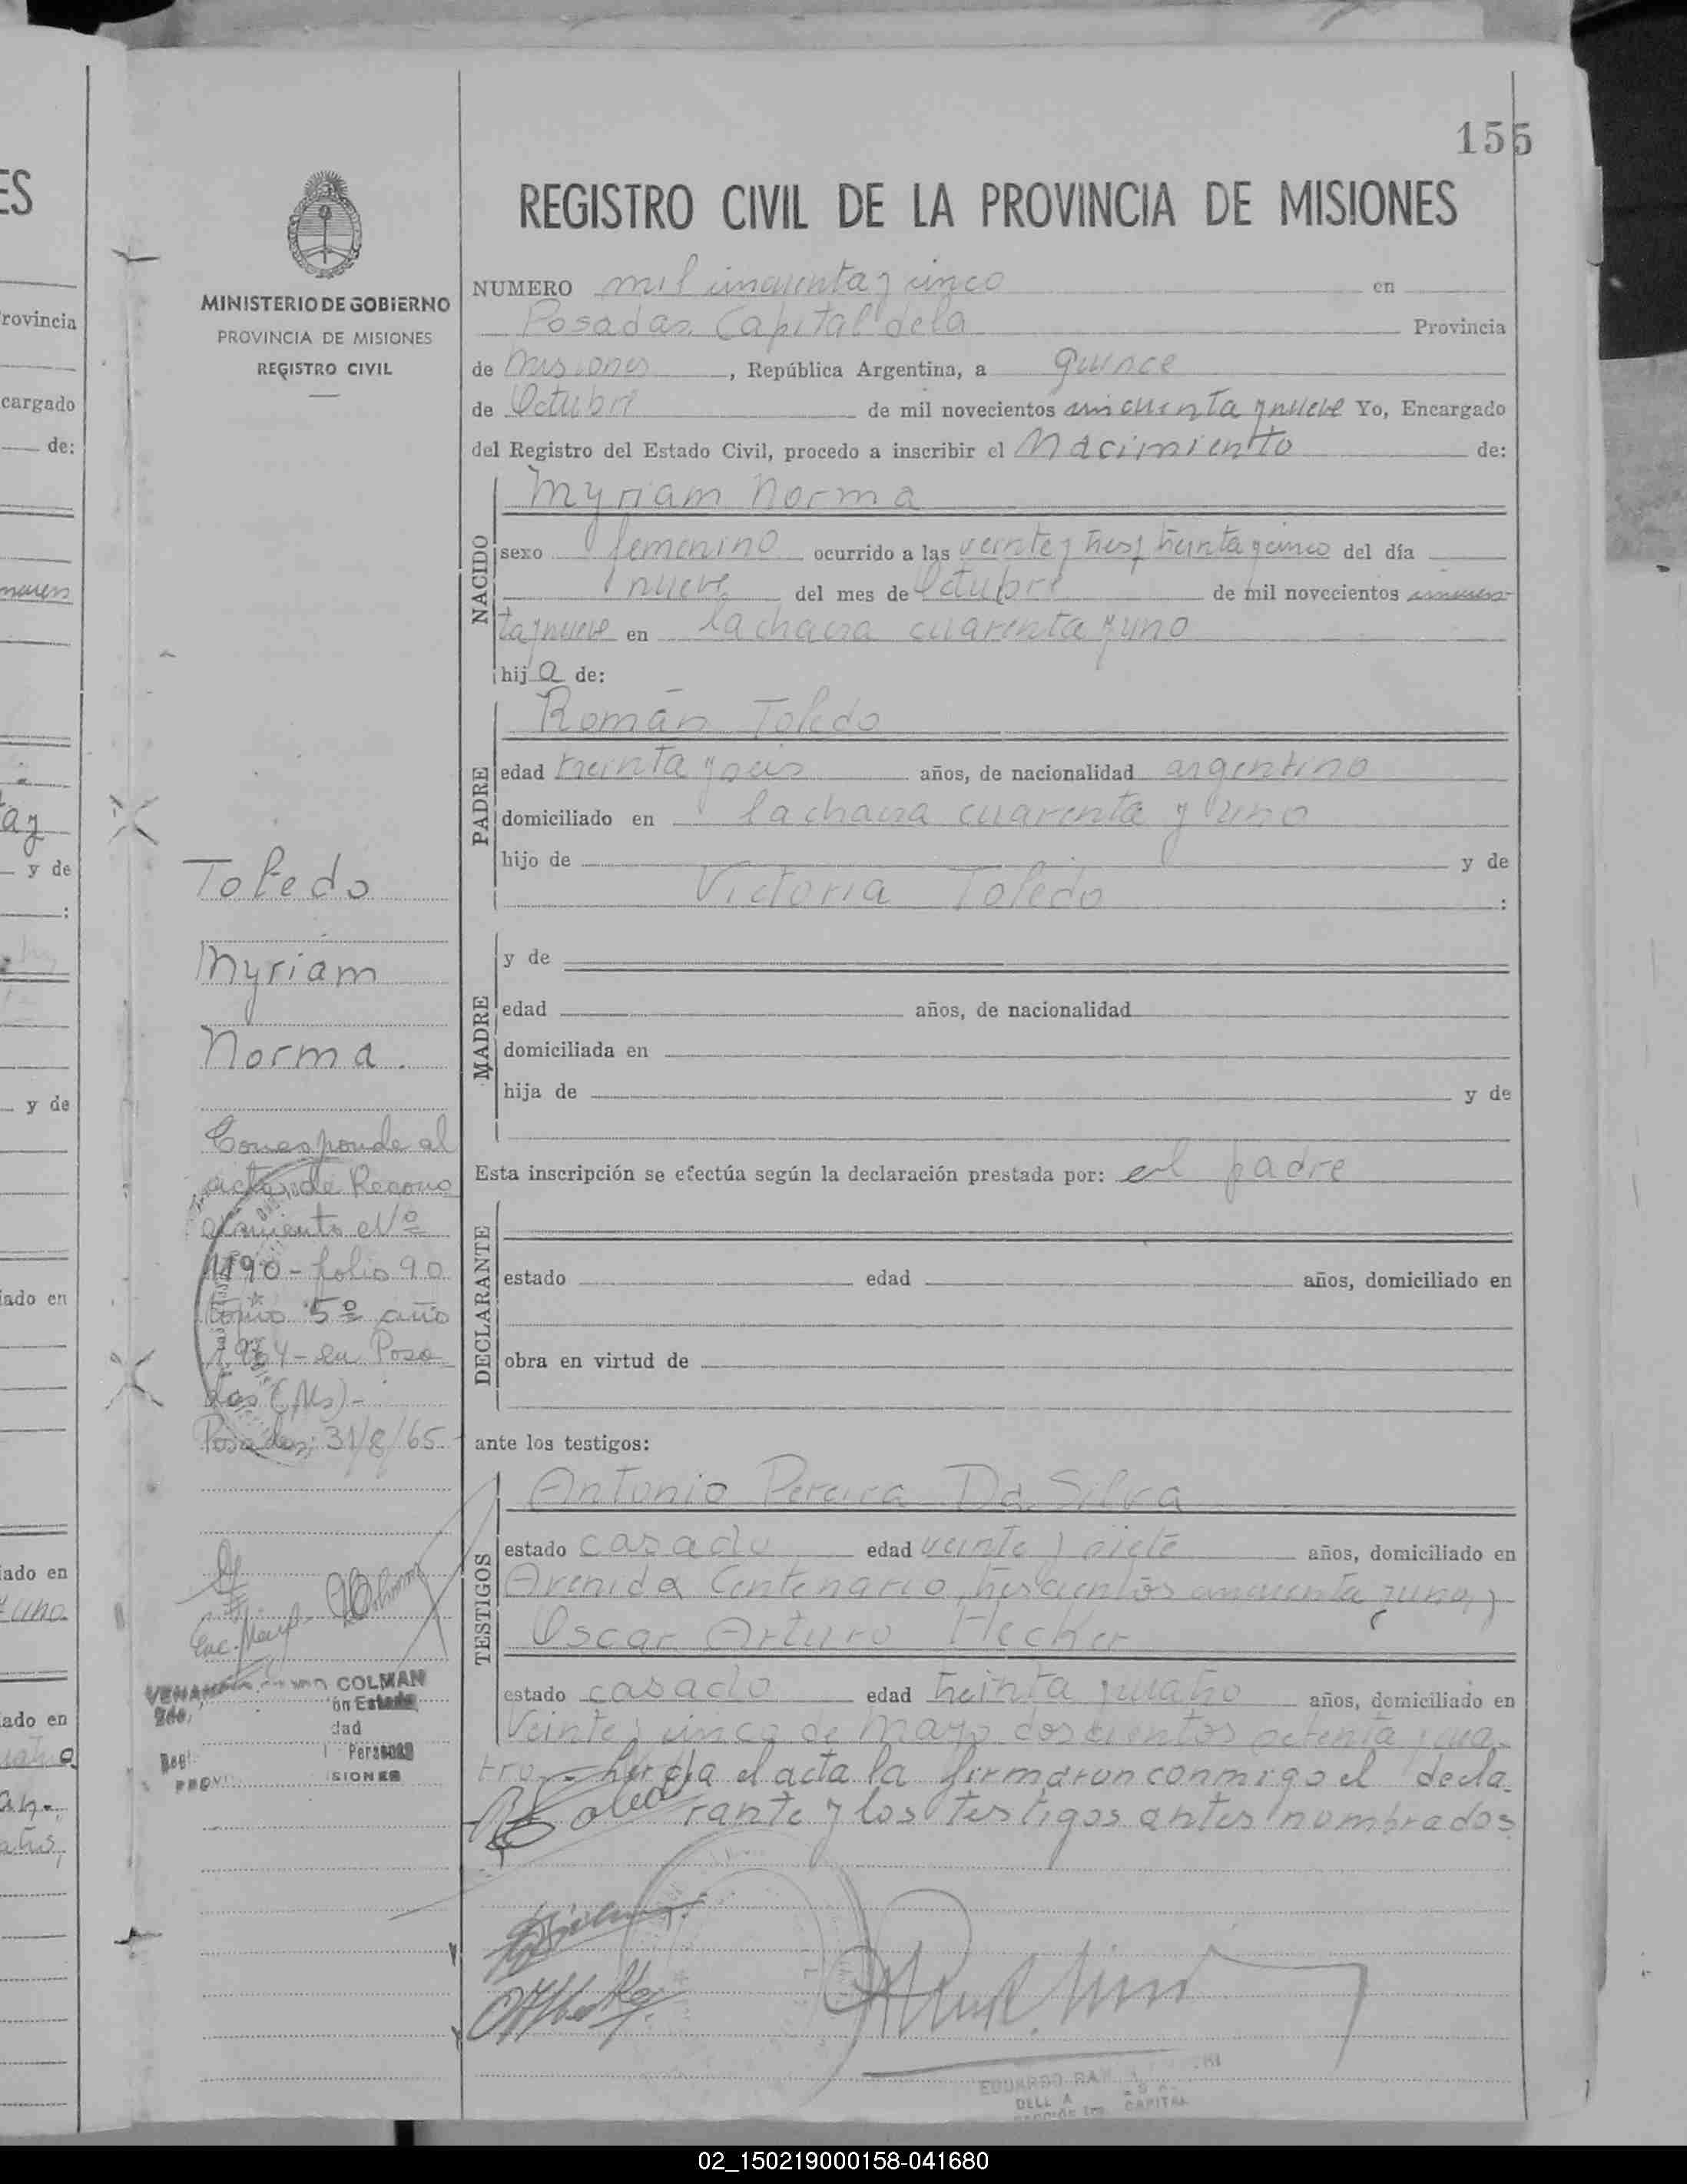 155
REGISTRO CIVIL DE LA PROVINCIA DE MISIONES
MINISTERIO DE GOBIERNO
PROVINCIA DE MISIONES
REGISTRO CIVIL
NUMERO mil cincuenta y cinco en
Posadas Capital de la Provincia
de Misiones, República Argentina, a quince
de Octubre de mil novecientos cincuenta y nueve Yo, Encargado
del Registro del Estado Civil, procedo a inscribir el Nacimiento de:
NACIDO
Myriam Norma
sexo femenino ocurrido a las veinte y tres y treinta y cinco del día
nueve del mes de Octubre de mil novecientos cincuen-
ta y nueve en la chacra cuarenta y uno
hija de:
PADRE
Román Toledo
edad treinta y seis años, de nacionalidad argentino
domiciliado en la chacra cuarenta y uno
hijo de y de
Victoria Toledo :
MADRE
y de
edad años, de nacionalidad
domiciliada en
hija de y de
Esta inscripción se efectúa según la declaración prestada por: el padre
DECLARANTE
estado edad años, domiciliado en
obra en virtud de
ante los testigos:
TESTIGOS
Antonio Pereira Da Silva
estado casado edad veinte y siete años, domiciliado en
Avenida Centenario trescientos cincuenta y uno, y
Oscar Arturo Hecker
estado casado edad treinta y cuatro años, domiciliado en
Veinte y cinco de Mayo doscientos setenta y cua-
tro.- Leída el acta la firmaron conmigo el decla-
rante y los testigos antes nombrados
Toledo
Myriam
Norma.
Corresponde al
acta de Recono
cimiento Nº
1190 - folio 90
tomo 5º año
1964 - en Posa
das (Ms)-
Posadas; 31/8/65.
COLMAN
dad
SIONES
EDUARDO
CAPITAL
ES
rovincia
cargado
de:
y de
:
y de
iado en
iado en
uno
ado en
02_150219000158-041680